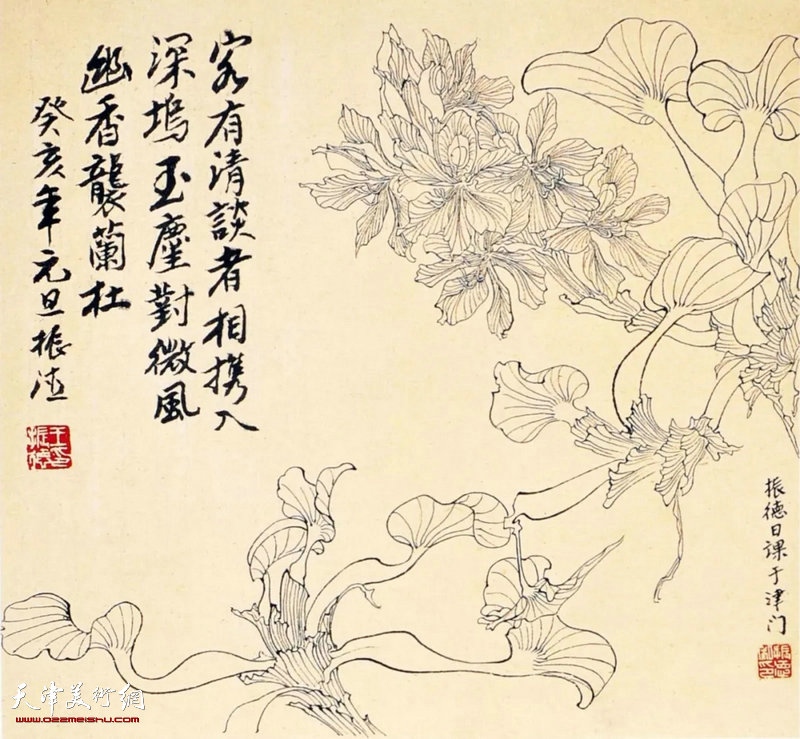 客有清談者相攜入
深塢玉麈對微風
幽香襲蘭杜
癸亥年元旦振德
振德日课于津门
天津美術網
www.022meishu.com